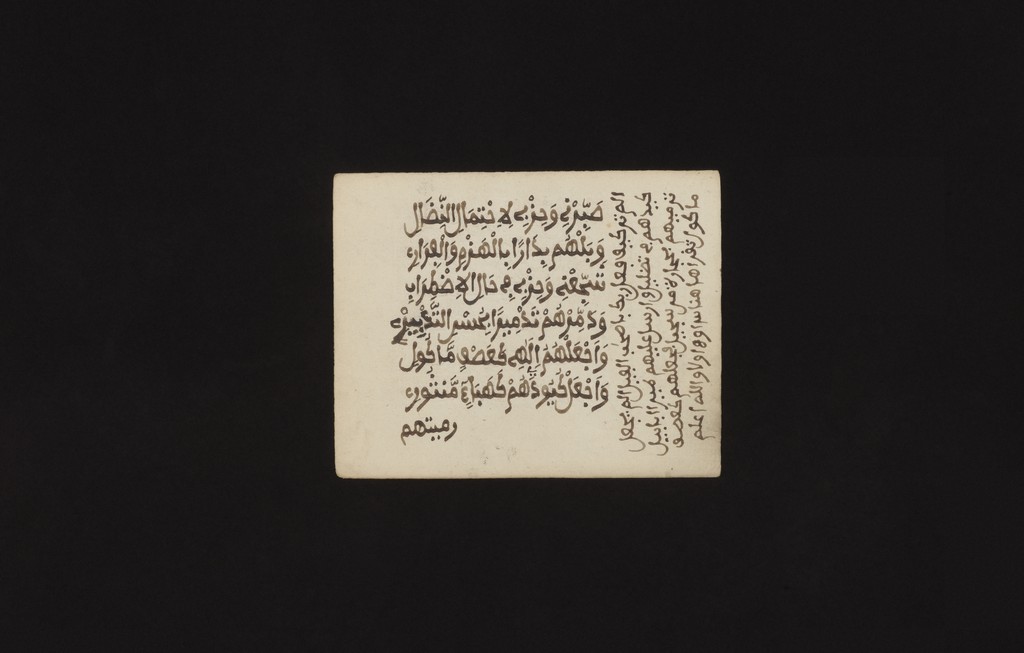 صَبِّرْنِي وَحِزْبِي لِاحْتِمَالِ النِّضَالِ
وَبَلِّهُمْ بِدَارًا بِالْهَزْمِ وَالْفِرَارِ
شَجِّعْنِي وَحِزْبِي فِي حَالِ الِاضْطِرَابِ
وَدَمِّرْهُمْ تَدْمِيرًا بِحُسْنِ التَّدْبِيرِ
وَاجْعَلْهُمْ إِلَهِي كَعَصْفٍ مَّاكُولِ
وَاجْعَلْ كُيُودَهُمْ كَهَبَاءٍ مَّنثُورِ
رميتهم
الم تر كيف فعل ربك باصحب الفيل الم يجعل
كيدهم في تضليل وارسل عليهم طيرا ابابيل
ترميهم بحجارة من سجيل فجعلهم كعصف
ماكول تقرأها هنا اولا والله اعلم